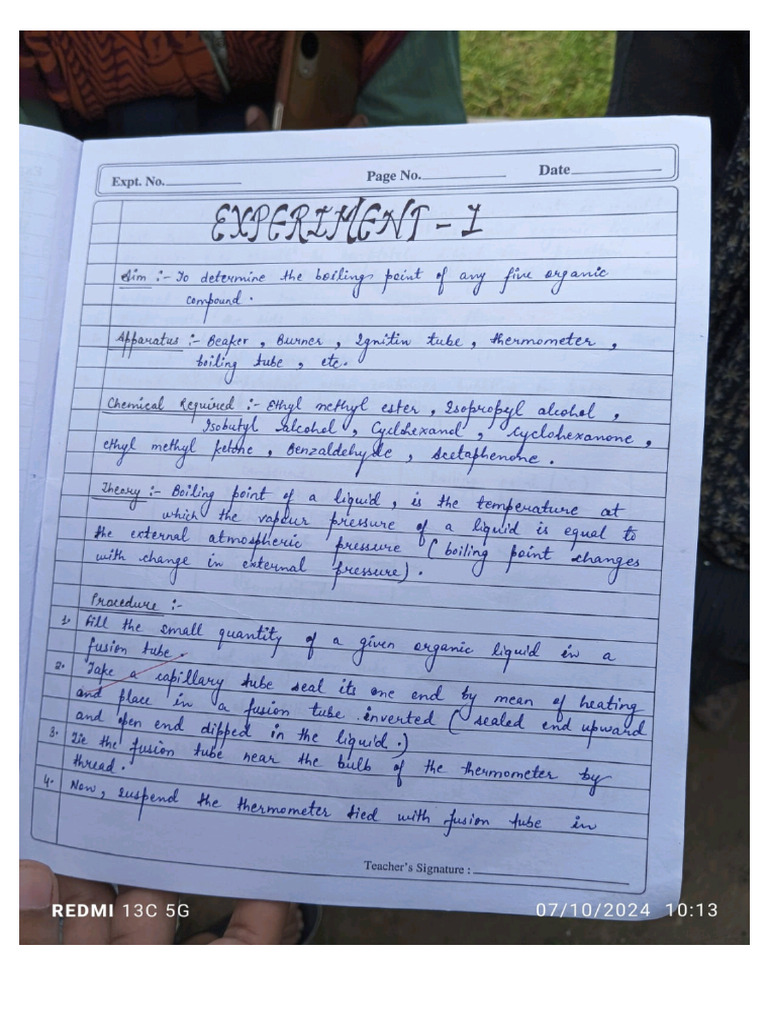 Expt. No. Page No. Date
EXPERIMENT - I
Aim :- To determine the boilings point of any five organic
compound.
Apparatus :- Beaker, Burner, Ignitin tube, thermometer,
boiling tube, etc.
Chemical Required :- Ethyl methyl ester, Isopropyl alcohol,
Isobutyl alcohol, Cyclohexanol, cyclohexanone,
ethyl methyl ketone, Benzaldehyde, Acetaphenone.
Theory :- Boiling point of a liquid, is the temperature at
which the vapour pressure of a liquid is equal to
the external atmospheric pressure (boiling point changes
with change in external pressure).
Procedure :-
1. Fill the small quantity of a given organic liquid in a
fusion tube.
2. Take a capillary tube seal its one end by mean of heating
and place in a fusion tube inverted (sealed end upward
and open end dipped in the liquid.)
3. Tie the fusion tube near the bulb of the thermometer by
thread.
4. Now, suspend the thermometer tied with fusion tube in
Teacher's Signature :
REDMI 13C 5G 07/10/2024 10:13